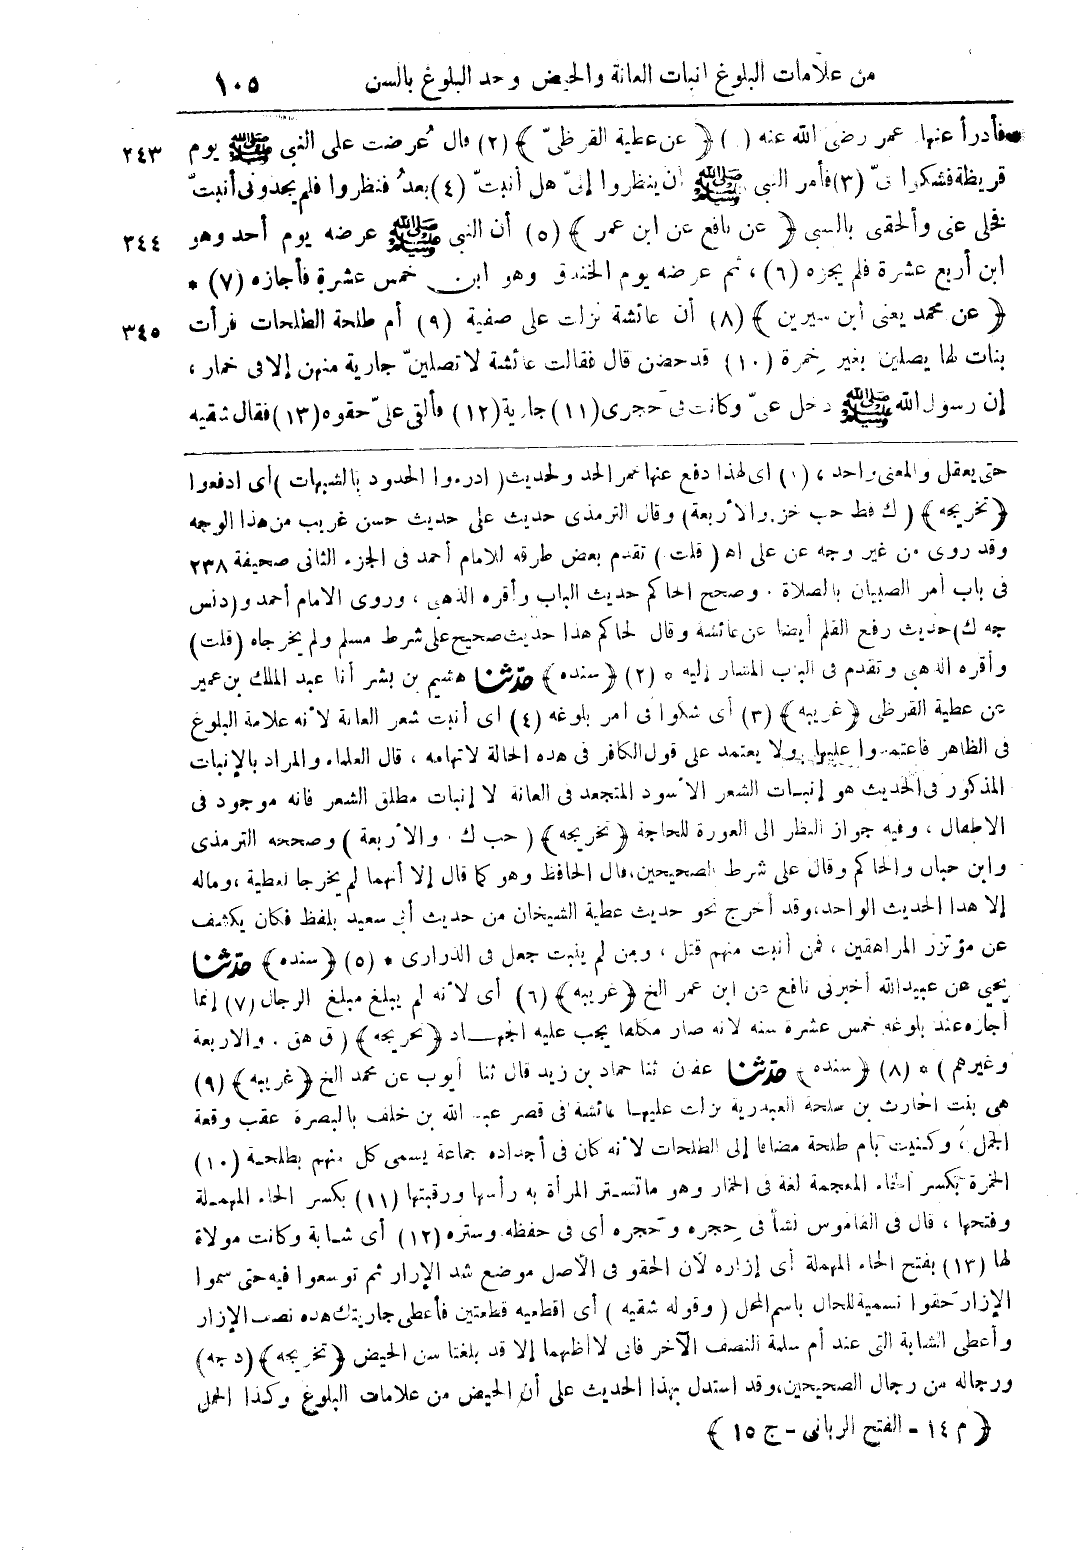 من علامات البلوغ انبات العانة والحيض وحد البلوغ بالسن ١٠٥
فأدرأ عنها عمر رضى الله عنه (١) ﴿ عن عطية القرظىّ ﴾ (٢) قال عُرضت على النبى ﷺ يوم ٢٤٣
قريظة فشكوا فىّ (٣) فأمر النبى ﷺ أن ينظروا إلىّ هل أنبتّ (٤) بعدُ فنظروا فلم يجدونى أنبتّ
فخلى عنى وألحقنى بالسبى ﴿ عن نافع عن ابن عمر ﴾ (٥) أن النبى ﷺ عرضه يوم أحد وهو ٣٤٤
ابن أربع عشرة فلم يجزه (٦) ، ثم عرضه يوم الخندق وهو ابن خمس عشرة فأجازه (٧) *
﴿ عن محمد يعنى ابن سيرين ﴾ (٨) أن عائشة نزلت على صفية (٩) أم طلحة الطلحات فرأت ٣٤٥
بنات لها يصلين بغير خِمرة (١٠) قد حضن قال فقالت عائشة لا تصلينّ جارية منهن إلا فى خمار ،
إن رسول الله ﷺ دخل علىّ وكانت فى حجرى (١١) جارية (١٢) فألقى علىّ حقوه (١٣) فقال شقيه
حتى يعقل والمعنى واحد ، (١) اى لهذا دفع عنها عمر الحد ولحديث ( ادرءوا الحدود بالشبهات ) أى ادفعوا
﴿ تخريجه ﴾ ( ك قط حب خز. والأربعة ) وقال الترمذى حديث على حديث حسن غريب من هذا الوجه
وقد روى من غير وجه عن على اه ( قلت ) تقدم بعض طرقه للامام أحمد فى الجزء الثانى صحيفة ٢٣٨
فى باب أمر الصبيان بالصلاة . وصحح الحاكم حديث الباب وأقره الذهبى ، وروى الامام أحمد و ( د نس
جه ك ) حديث رفع القلم أيضا عن عائشة وقال الحاكم هذا حديث صحيح على شرط مسلم ولم يخرجاه ( قلت )
وأقره الذهبى وتقدم فى الباب المشار إليه * (٢) ﴿ سنده ﴾ حدثنا هشيم بن بشر أنا عبد الملك بن عمير
عن عطية القرظى ﴿ غريبه ﴾ (٣) أى شكوا فى امر بلوغه (٤) اى أنبت شعر العانة لأنه علامة البلوغ
فى الظاهر فاعتمدوا عليها ولا يعتمد على قول الكافر فى هذه الحالة لاتهامه ، قال العلماء والمراد بالإنبات
المذكور فى الحديث هو إنبات الشعر الأسود المتجعد فى العانة لا إنبات مطلق الشعر فانه موجود فى
الاطفال ، وفيه جواز النظر الى العورة للحاجة ﴿ تخريجه ﴾ ( حب ك . والأربعة ) وصححه الترمذى
وابن حبان والحاكم وقال على شرط الصحيحين، قال الحافظ وهو كما قال إلا أنهما لم يخرجا لعطية ، وماله
إلا هذا الحديث الواحد، وقد أخرج نحو حديث عطية الشيخان من حديث أبى سعيد بلفظ فكان يكشف
عن مؤتزر المراهقين ، فمن أنبت منهم قتل ، ومن لم ينبت جعل فى الذرارى * (٥) ﴿ سنده ﴾ حدثنا
يحيى عن عبيد الله أخبرنى نافع عن ابن عمر الخ ﴿ غريبه ﴾ (٦) أى لأنه لم يبلغ مبلغ الرجال (٧) إنما
أجازه عند بلوغه خمس عشرة سنه لانه صار مكلفا يجب عليه الجهاد ﴿ تخريجه ﴾ ( ق هق . والاربعة
وغيرهم ) * (٨) ﴿ سنده ﴾ حدثنا عفان ثنا حماد بن زيد قال ثنا أيوب عن محمد الخ ﴿ غريبه ﴾ (٩)
هى بنت الحارث بن طلحة العبدرية نزلت عليها عائشة فى قصر عبد الله بن خلف بالبصرة عقب وقعة
الجمل ، وكنيت بأم طلحة مضافا إلى الطلحات لأنه كان فى أجداده جماعة يسمى كل منهم بطلحة (١٠)
الخمرة بكسر الخاء المعجمة لغة فى الخمار وهو ما تستتر المرأة به رأسها ورقبتها (١١) بكسر الحاء المهملة
وفتحها ، قال فى القاموس نشأ فى حِجره وحَجره أى فى حفظه وستره (١٢) أى شابة وكانت مولاة
لها (١٣) بفتح الحاء المهملة أى إزاره لأن الحقو فى الأصل موضع شد الإزار ثم توسعوا فيه حتى سموا
الإزار حقوا تسمية للحال باسم المحل ( وقوله شقيه ) أى اقطعيه قطعتين فأعطى جاريتك هذه نصف الإزار
وأعطى الشابة التى عند أم سلمة النصف الآخر فانى لا اظهما إلا قد بلغتا سن الحيض ﴿ تخريجه ﴾ ( د جه )
ورجاله من رجال الصحيحين، وقد استدل بهذا الحديث على أن الحيض من علامات البلوغ وكذا الحمل
﴿ م ١٤ - الفتح الربانى - ج ١٥ ﴾